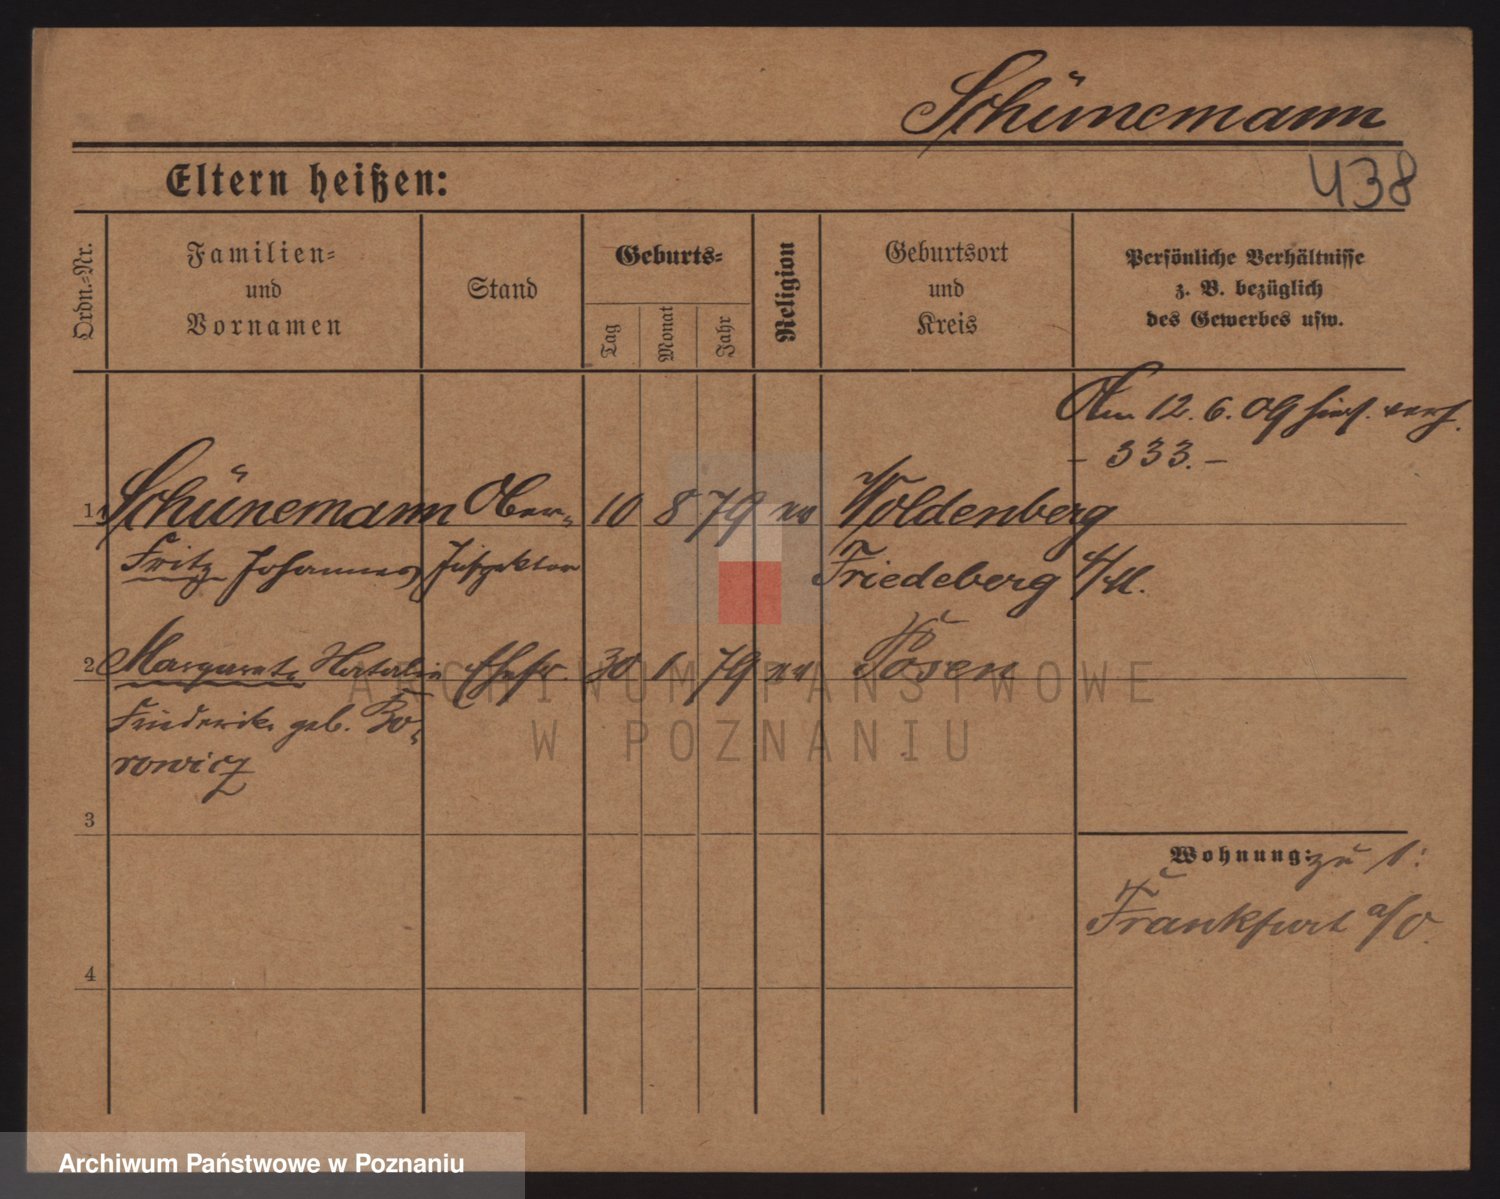 Schünemann
438
Eltern heißen:
Ordn.-Nr.
Familien-
und
Vornamen
Stand
Geburts-
Tag
Monat
Jahr
Religion
Geburtsort
und
Kreis
Persönliche Verhältnisse
z. B. bezüglich
des Gewerbes usw.
Am 12.6.09 hier verh.
- 333. -
1 Schünemann Ober- 10 8 79 ev Woldenberg
Fritz Johannes Inspektor Friedeberg
2 Margarete Ehefr. 30 1 79 ev Posen
Friederike geb. Bo-
rowicz
3
Wohnung: zu 1:
Frankfurt a/O.
4
ARCHIWUM PAŃSTWOWE
W POZNANIU
Archiwum Państwowe w Poznaniu